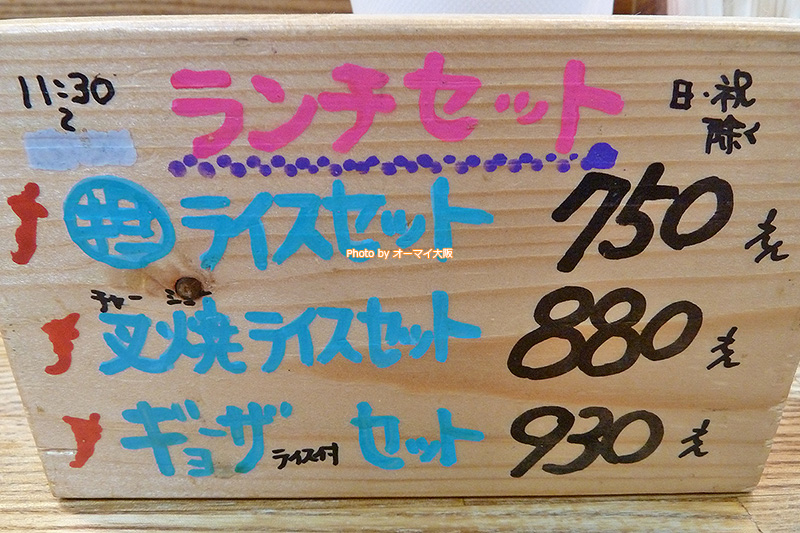 11:30
〜
ランチセット
日・祝
除く
ライスセット 750 えん
Photo by オーマイ大阪
チャーシュー
叉焼ライスセット 880 えん
ギョーザ ライス付 セット 930 えん